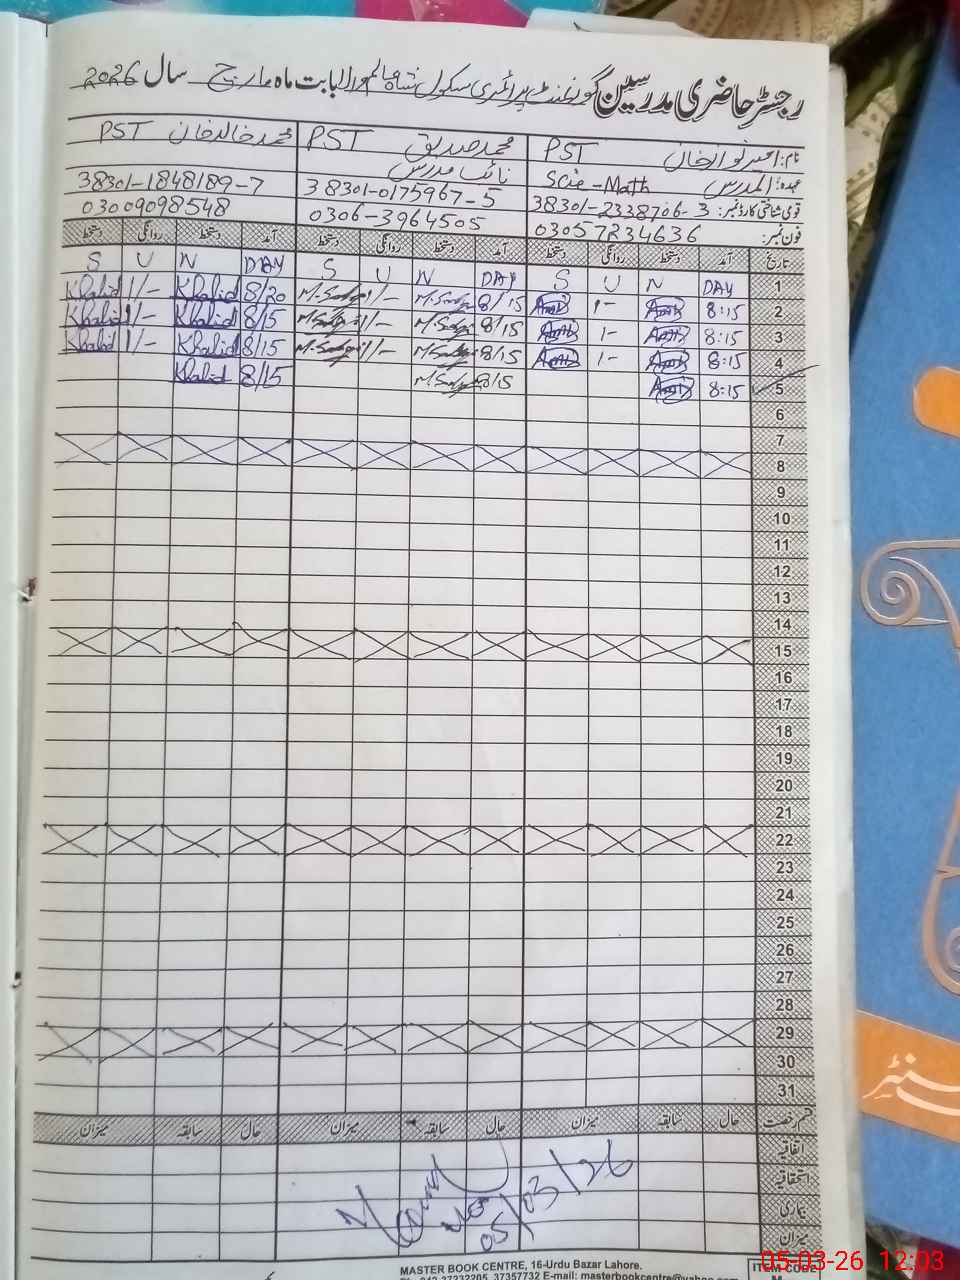 رجسٹر حاضری مدرسین گورنمنٹ پرائمری سکول شاہ عالم والا بابت ماہ مارچ سال 2026
نام: امیر نواز خان PST
محمد صدیق PST
محمد خالد خان PST
عہدہ: المدرس Scie-Math
نائب مدرس
قومی شناختی کارڈ نمبر: 38301-2338706-3
38301-0175967-5
38301-1848189-7
فون نمبر: 03057234636
0306-3964505
03009098548
تاریخ آمد دستخط روانگی دستخط آمد دستخط روانگی دستخط آمد دستخط روانگی دستخط
1 DAY N U S DAY N U S DAY N U S
2 8:15 1- 8/15 M.Sadiq 1/- M.Sadiq 8/20 Khalid 1/- Khalid
3 8:15 1- 8/15 M.Sadiq 1/- M.Sadiq 8/15 Khalid 1/- Khalid
4 8:15 1- 8/15 M.Sadiq 1/- M.Sadiq 8/15 Khalid 1/- Khalid
5 8:15 8/15 M.Sadiq 8/15 Khalid
6
7
8
9
10
11
12
13
14
15
16
17
18
19
20
21
22
23
24
25
26
27
28
29
30
31
قسم رخصت حال سابقہ میزان حال سابقہ میزان حال سابقہ میزان
اتفاقیہ
استحقاقیہ
بیماری
میزان
05/03/26
MASTER BOOK CENTRE, 16-Urdu Bazar Lahore.
37232205, 37357732 E-mail: masterbookcentre@yahoo.com
ITEM CODE
سنٹر
05-03-26 12:03